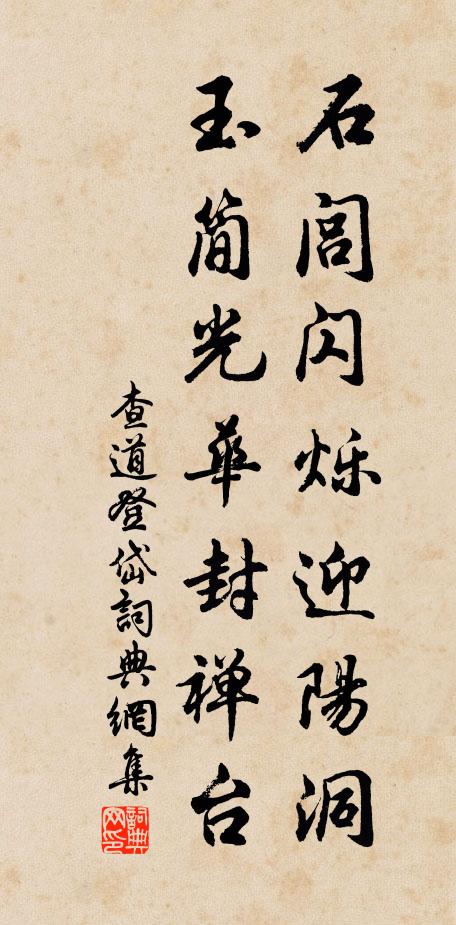 石闾闪烁迎陽洞
玉简光华封禅台
查道登岱詞典網集
詞典网印